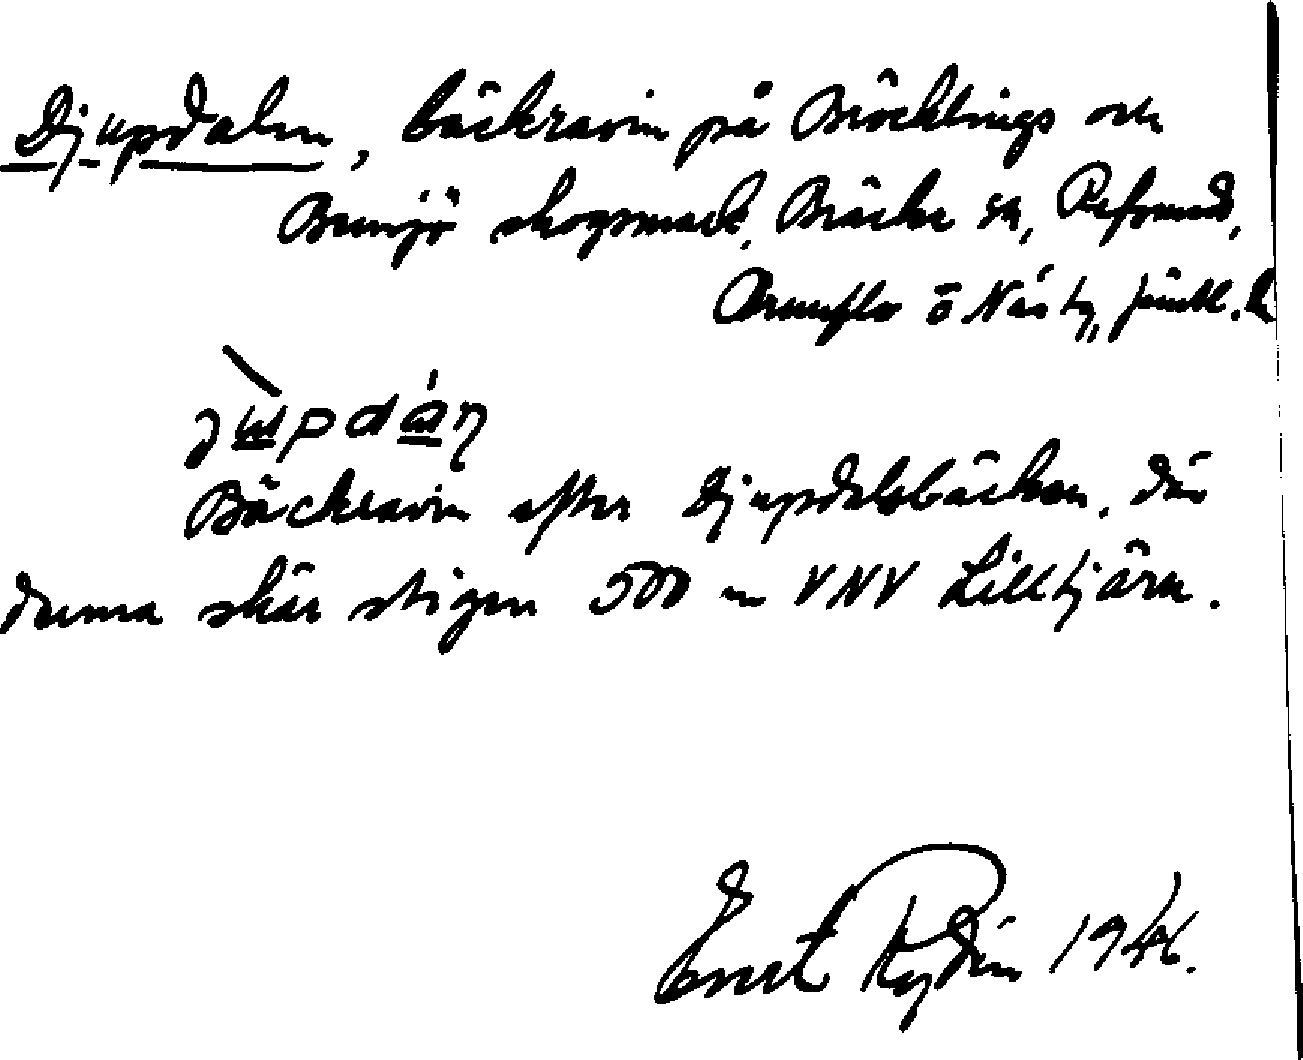 Djupdalen, bäckravin på Bräcklings och
Bensjö skogsmark, Bräcke sn, Refsund,
Brunflo o Näs tg, Jämtl. l.
Bäckravin efter Djupdalsbäcken, där
denna skär stigen 500 m VNV Lilltjärn.
Ernst Rydén 1946.